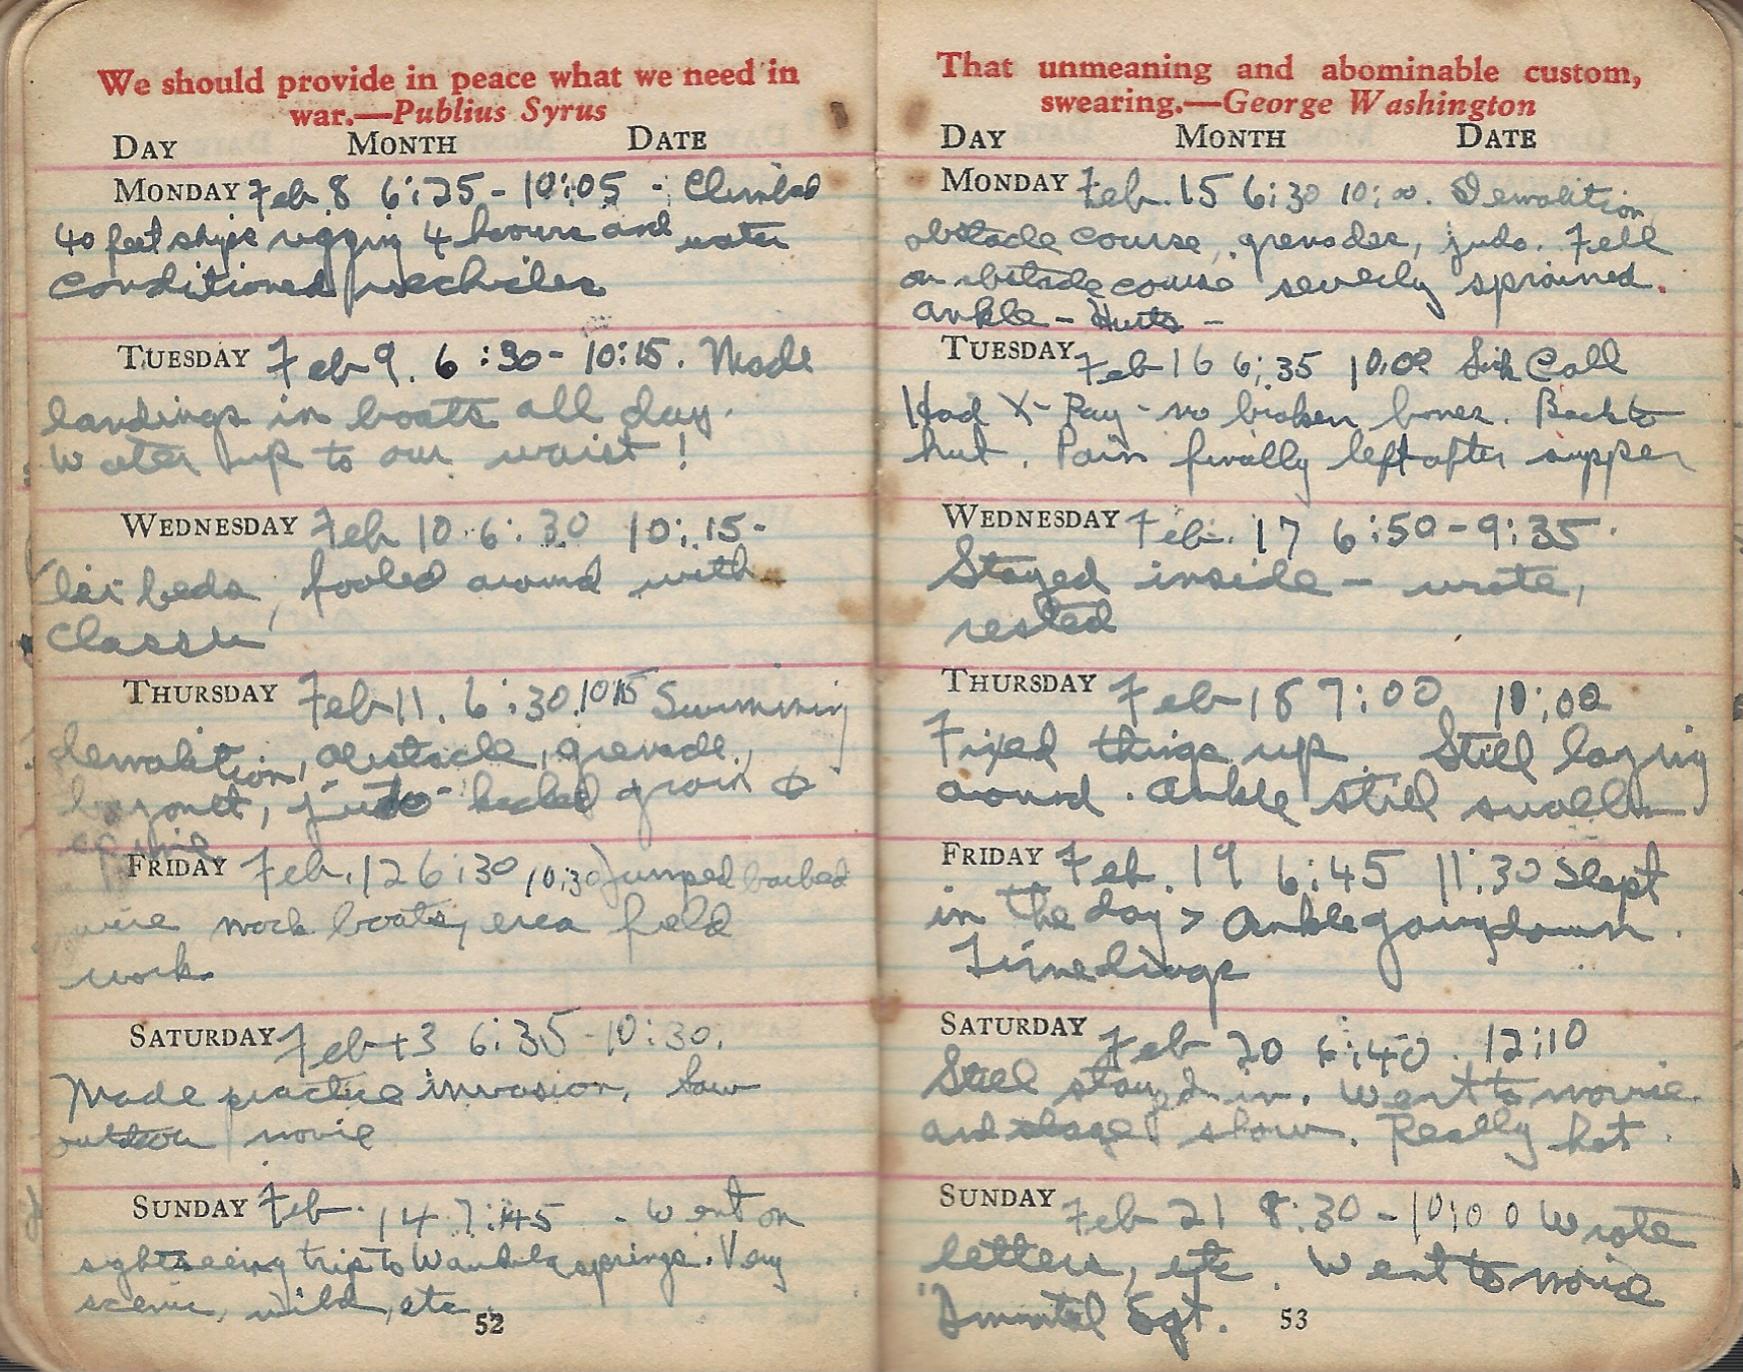 We should provide in peace what we need in
war.—Publius Syrus
DAY MONTH DATE
MONDAY Feb. 8 6:25 - 10:05 - Climbed
40 feet ships rigging 4 hours and water
conditioned vechicles
TUESDAY Feb 9. 6:30 - 10:15. Made
landings in boats all day.
Water up to our waist!
WEDNESDAY Feb 10 6:30 10:15-
beds, fooled around with
classes
THURSDAY Feb 11. 6:30 1015 Swimming
demolition, obstacle, grenade,
bayonet, judo - groin &
FRIDAY Feb. 12 6:30 10:30 Jumped barbed
wire mock boats, area field
work.
SATURDAY Feb 13 6:35 - 10:30.
Made practice invasion, Saw
outdoor movie
SUNDAY Feb. 14 7:45 - Went on
sightseeing trip to springs. Very
scenic, wild, etc.
52
That unmeaning and abominable custom,
swearing.—George Washington
DAY MONTH DATE
MONDAY Feb. 15 6:30 10:00. Demolition,
obstacle course, grenades, judo. Fell
on obstacle course severly sprained.
ankle - Hurts -
TUESDAY Feb 16 6:35 10:00 Sick Call
Had X-Ray - no broken bones. Back to
hut. Pain finally left after supper
WEDNESDAY Feb. 17 6:50 - 9:35.
Stayed inside - wrote,
rested
THURSDAY Feb 18 7:00 10:00
Fixed things up. Still laying
around. Ankle still swollen
FRIDAY Feb. 19 6:45 11:30 Slept
in the day > Ankle going down.
SATURDAY Feb 20 6:40. 12:10
Still stayed in. Went to movie
and stage show. Really hot.
SUNDAY Feb 21 8:30 - 10:00 Wrote
letters, etc. Went to movie
"Immortal Sgt.
53